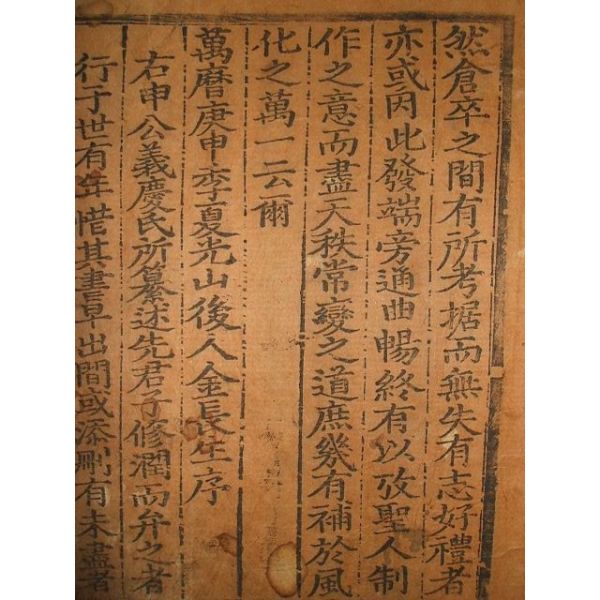 然倉卒之間有所考据而無失有志好禮者
亦或因此發端旁通曲暢終有以攷聖人制
作之意而盡天秩常變之道庶幾有補於風
化之萬一云爾
萬曆庚申季夏光山後人金長生序
右申公義慶氏所纂述先君子修潤而弁之者
行于世有年惜其書早出間或添刪有未盡者